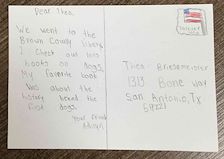 Dear Thea,
We went to the
Brown County library
I check out lots
books on dogs.
My favorite book
was about the
history behind the
first dogs.
Your friend
Thea Briesemeister
1313 Bone Way
San Antonio, Tx